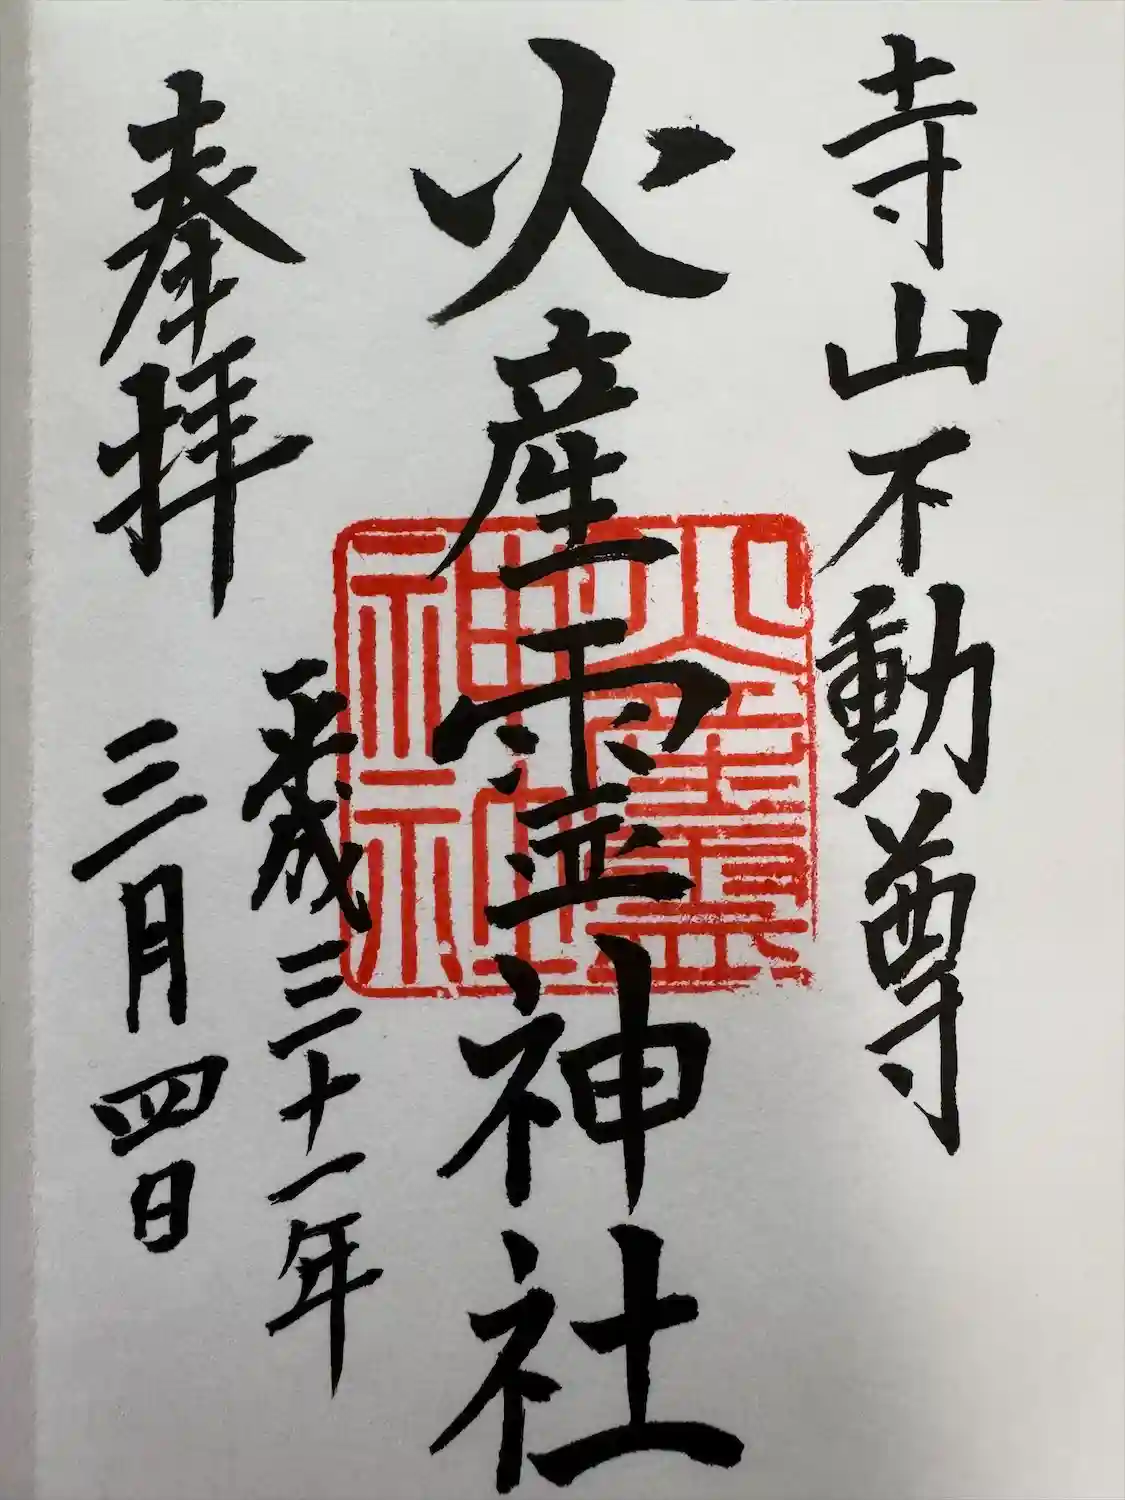 寺山不動尊
火産霊神社
平成三十一年
奉拝 三月四日
火産霊
神社神社